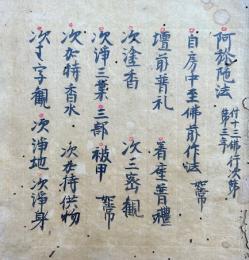 阿弥陁法 付十三佛行次第 第三年
自房中至佛前作法 如常
壇前普礼 着座普礼
次塗香 次三密觀
次浄三業 三部 被甲 如常
次加持香水 次加持供物
次字觀 次浄地 次浄身